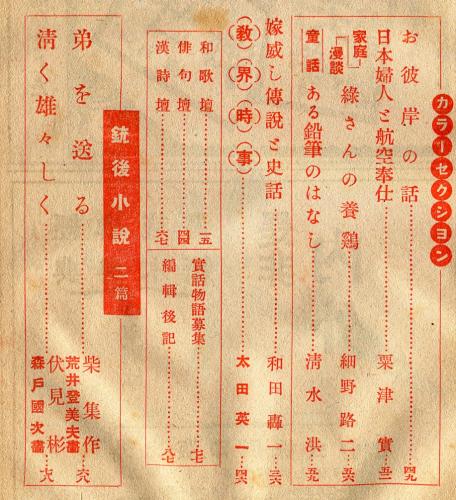 カラーセクション
お彼岸の話……………四九
日本婦人と航空奉仕……粟津實…五二
家庭漫談 綠さんの養鷄……細野路二…五六
童話 ある鉛筆のはなし……清水洪…五九
嫁威し傳說と史話……和田轟一…三六
(敎)(界)(時)(事)……太田英一…四六
和歌壇……一五
俳句壇……四四
漢詩壇……六七
實話物語募集……七七
編輯後記……八七
銃後小說二篇
弟を送る……柴集作
荒井登美夫畵…六六
淸く雄々しく……伏見彬
森戶國次畵…七八